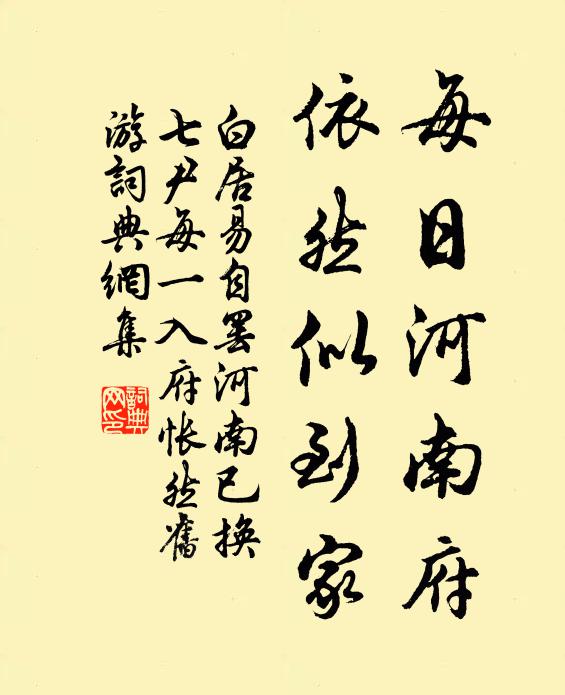 每日河南府
依然似到家
白居易自罢河南已换
七尹每一入府怅然旧
游詞典網集
詞典
网印